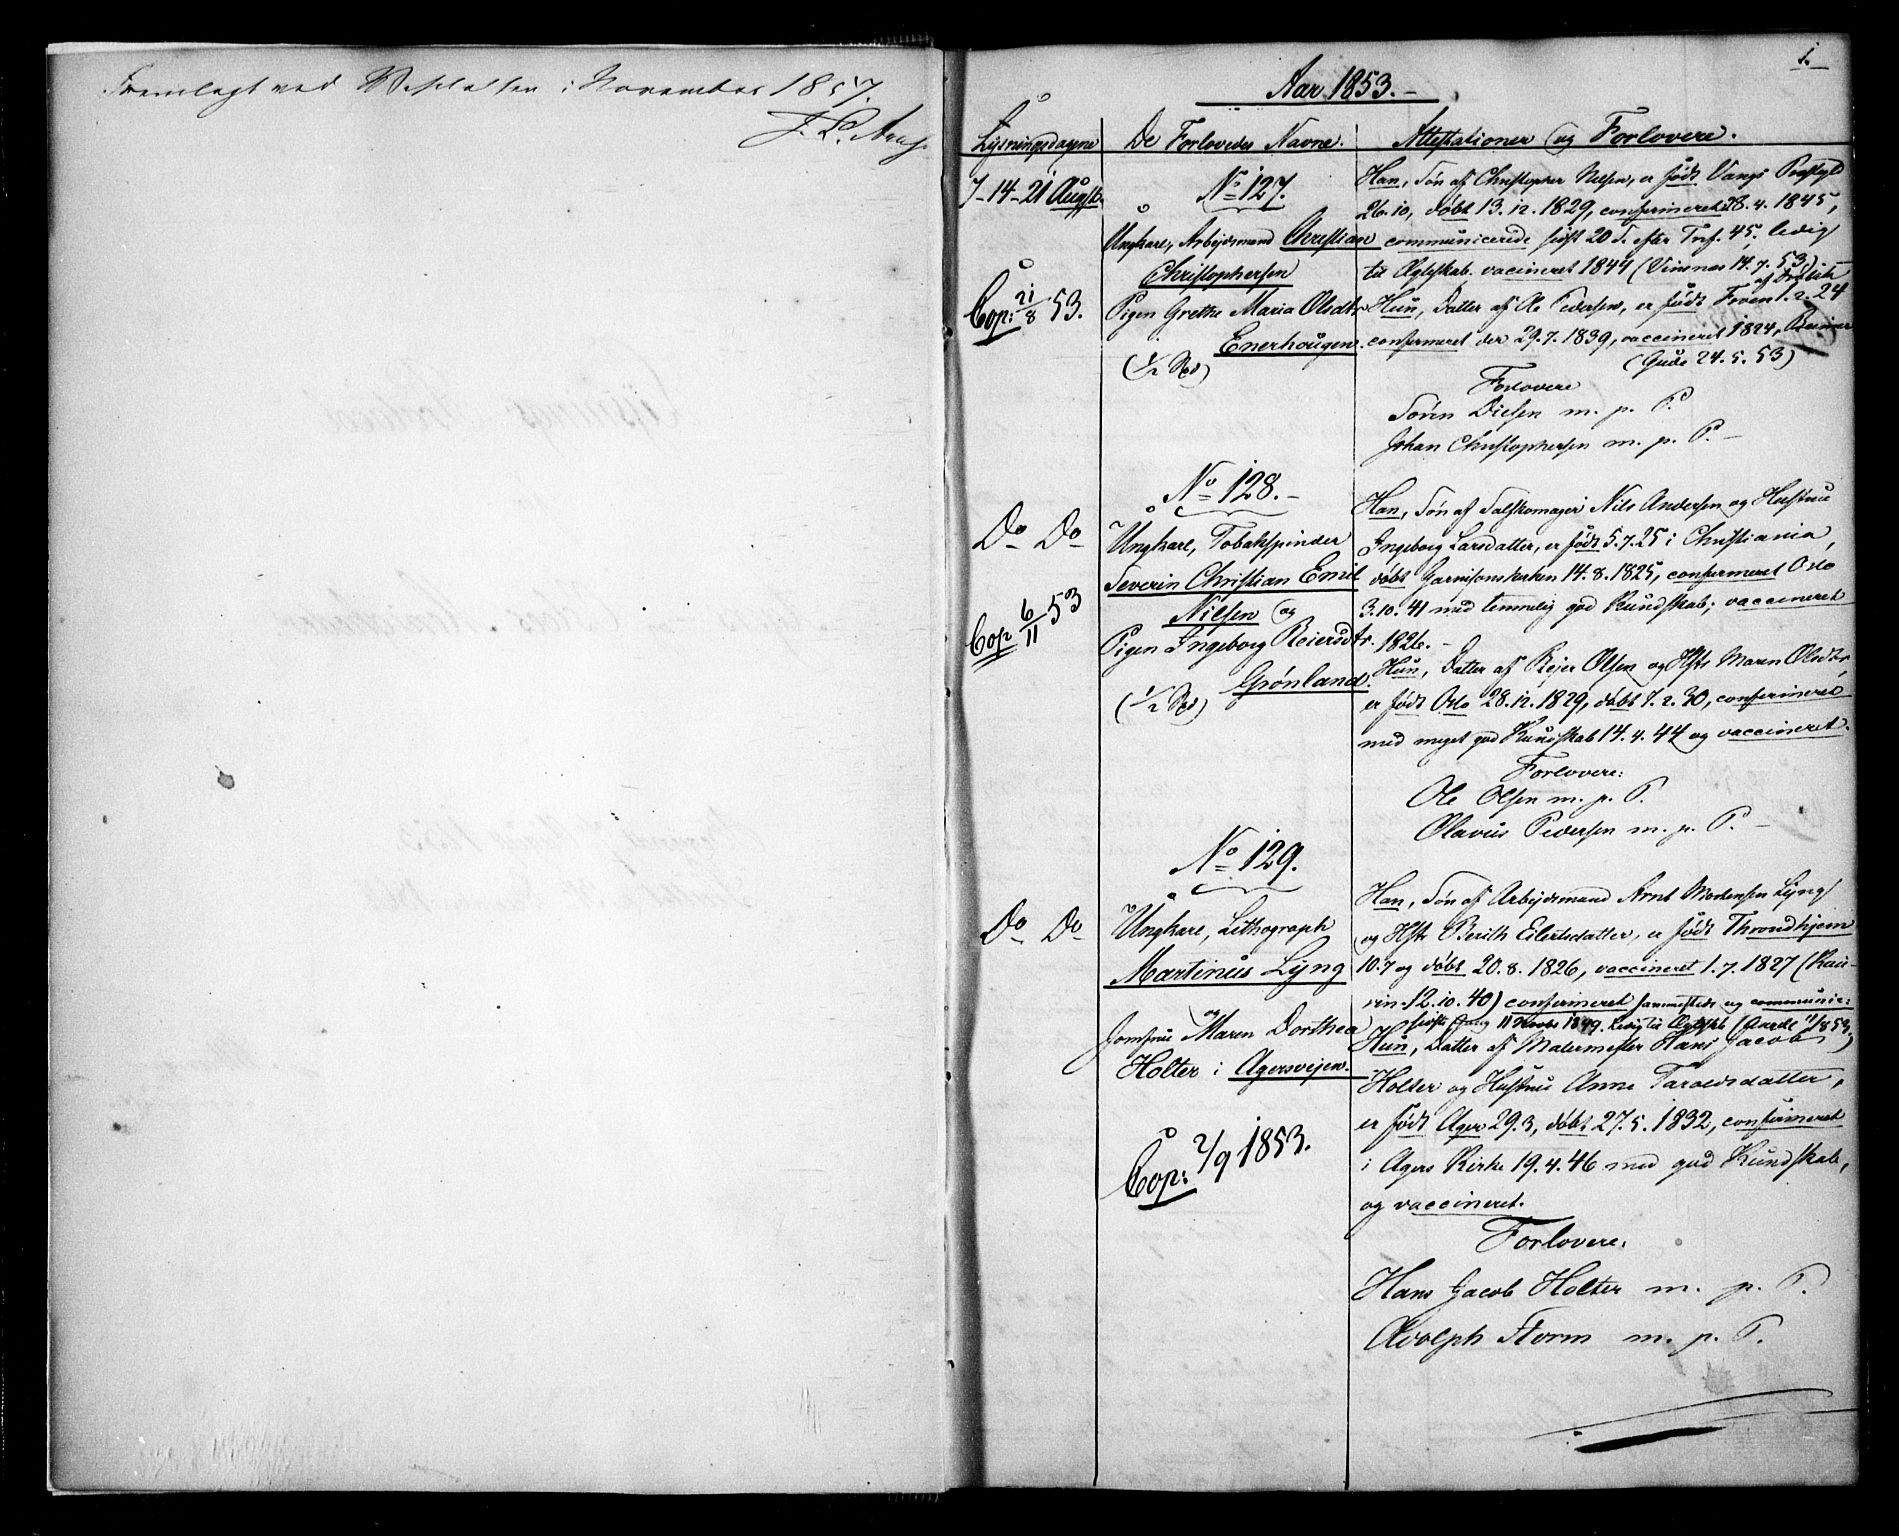 Fremlagt ved Visitatsen i November 1857.
1.
Aar 1853.-
Lysningsdagene
De Forlovedes Navne.
Attestationer og Forlovere.
7-14-21 Augst.
Cop: 21/8 53.
No 127.
Ungkarl, Arbejdsmand Christian
Christophersen
Pigen Grethe Maria Olsdtr
Enerhougen.
(1/2 Spd)
Han, Søn af Christopher Nilsen, er født Vangs Prstgjld
26.10, døbt 13.12.1829, confirmeret 28.4.1845,
communicerede sidst 20 S. efter Tref. 45, ledig
til Ægteskab. vaccineret 1844 (Vinsnes 14.7.53)
Hun, Datter af Ole Pedersen, er født Froen 1.2.24
confirmeret der 29.7.1839, vaccineret 1824,
(Gude 24.5.53)
Forlovere
Søren Diesen m. p. P.
Johan Christophersen m. p. P. -
Do Do
Cop 6/11 53
No 128.-
Ungkarl, Tobakspinder
Severin Christian Emil
Nilsen og
Pigen Ingeborg Reiersdtr.
Grønland.
(1/2 Spd)
Han, Søn af Salskomager Nils Andersen og Hustrue
Ingeborg Larsdatter, er født 5.7.25 i Christiania,
døbt Garnisonskirken 14.8.1825, confirmeret Oslo
3.10.41 med temmelig god Kundskab; vaccineret
1826.-
Hun, Datter af Rejer Olsen og Hstr Maren Olsdtr,
er født Oslo 28.12.1829, døbt 7.2.30, confirmeret
med meget god Kundskab 14.4.44 og vaccineret.
Forlovere:
Ole Olsen m. p. P.
Olavus Pedersen m. p. P. -
Do Do
No 129.
Ungkarl, Lithograph
Martinus Lyng
og
Jomfrue Maren Dorthea
Holter i Agersvejen.
Cop: 2/9 1853.
Han, Søn af Arbejdsmand Arnt Mortensen Lyng
og Hstr Berith Eilertsdatter, er født Throndhjem
10.7 og døbt 20.8.1826, vaccineret 1.7.1827 (Kau-
rin 12.10.40) confirmeret sammesteds og communic:
sidste Gang 11 Novbr 1849. Ledig til Ægtesk (Aarle 11/1853)
Hun, Datter af Malermester Hans Jacob
Holter og Hustrue Anne Taroldsdatter,
er født Ager 29.3, døbt 27.5.1832, confirmeret
i Agers Kirke 19.4.46 med god Kundskab,
og vaccineret.
Forlovere:
Hans Jacob Holter m. p. P.
Adolph Storm m. p. P.